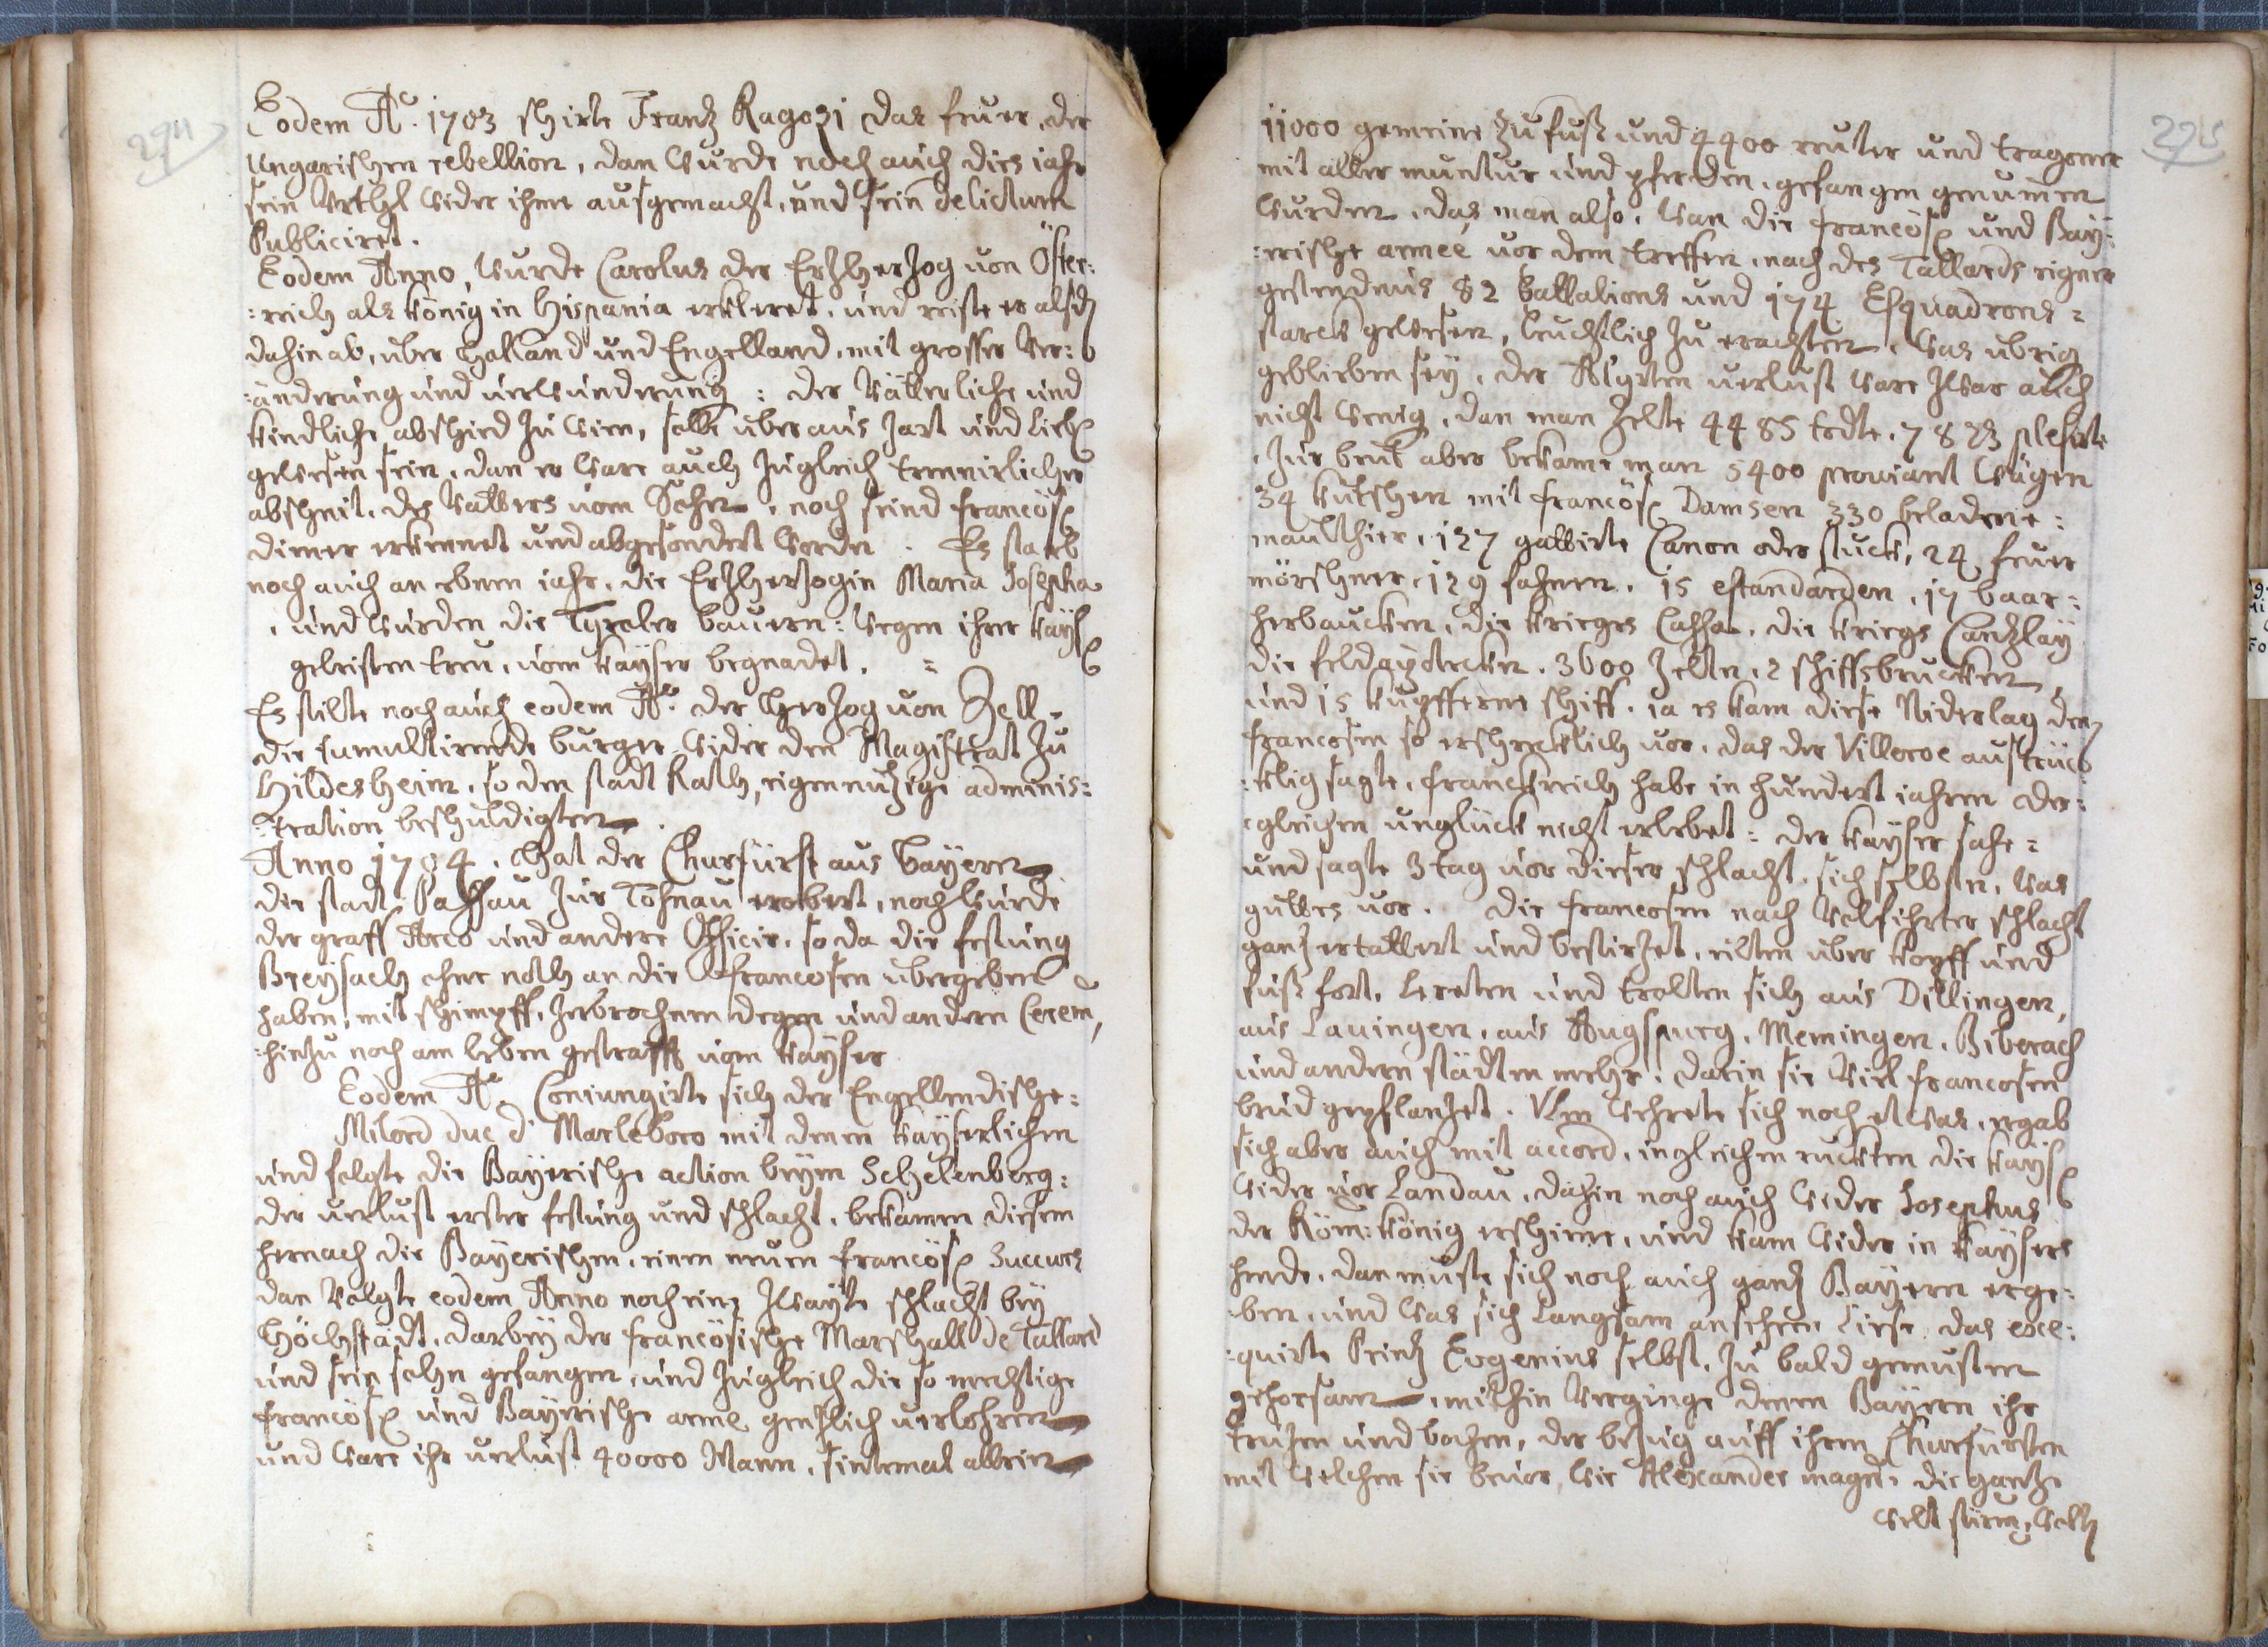 294
Eodem Aº. 1703 schirte Frantz Ragozi das feuer, der
Ungarischen rebellion, dan wurde noch auch dies jahr
sein Urthl wider ihme ausgemacht, und sein delictum
Publiciret.
Eodem Anno, wurde Carolus der Ertzhertzog von Öster:
:reich als König in Hispania erkleret, und reiste er alsch
dahin ab, uber Holland und Engelland, mit grosser Ver:
:änderung und verwunderung: der Vätterliche und
kindliche abschied zu Wien, solle uberaus zart und Lieb
gewesen sein, dan er ware auch zugleich
abschnit, des Vatters vom Sohn, noch seind francös
diener erkennet und abgesondert worden. Es starb
noch auch an ebnen jahr, die Ertzhertzogin Maria Josepha
, und wurden die Tyroler bauren: wegen ihrer kays
geleisten treu, vom kayser begnadet. =
Es stilte noch auch eodem Aº. der Hertzog von Zell,
die tumultirende burger wider den Magistrat zu
Hildesheim, so den stadt Rath, eigennutzige adminis:
:tration beschuldigten.
Anno 1704. Hat der Churfürst aus bayern
die stadt Passau zur Tohnau erobert, noch wurde
der graff Arco und andere Officir, so da die festung
Breysach ohne noth an die francosen ubergeben
haben, mit schimpff, zerbrochnem degen und andern Cerem,
:hinzu noch am leben gestrafft vom kayser
Eodem Aº. Coniungirte sich der Engellendische:
Milord duc d' Marleboro mit denen kayserlichen
und folgte die Bayerische action beym Schelenberg:
der verlust erster festung und schlacht, bekamen diesem
hernach die Bayerischen, einen neuen francös Succurs
dan volgte eodem Anno noch eine zwayte schlacht bey
Höchstädt, darbey der francösische Marschall de Tallard
und sein sohn gefangen, und zugleich die so mechtige
francös und Bayerische arme gentzlich verlohren
und ware ihr verlust 40000 Mann, sintemal allein
295
11000 gemeine zu fuß und 4400 reuter und tragoner
mit aller muntur und pferden, gefangen genumen
wurden, das man also, wan die francös und Bay:
:erische armee vor dem treffen, nach des Tallards eigner
gestendnus 82 battalions und 174 Esquadrons =
starck gewesen, leuchtlich zu erachten, was ubrig
geblieben sey, der Alyrten verlust ware zwar auch
nicht wenig, dan man zelte 4485 todte, 7823 plesirte
, zur beut aber bekame man 5400 proviant wägen
34 kutschen mit francös Damsen 330 beladene:
maulthier, 127 Canon oder stuck, 24 feuer
mörschner, 129 fahnen, 15 estandarden, 17 baar:
herbaucken, die krieges Cassa, die kriegs Cantzlay
die feldapotecken, 3600 zelten, 2 schiffsbrucken,
und 15 kupfferne schiff, ja es kam diese Niderlag den
francosen so erschrecklich vor, das der Villeroe austrück
:klig sagte, franckreich habe in hundert jahren der:
:gleichen unglück nicht erlebet: der kayser sahe =
und sagte 3 tag vor dieser schlacht, sich selbsten, was
guttes vor. die francosen nach volfihrter schlacht
gantz ertattert und bestirzet, eilten uber kopff und
fuß fort, Lereten und trolten sich aus Dillingen,
aus Lauingen, aus Augspurg, Memingen, Biberach
und andern städten mehr, darin sie viel francosen
brud gepflanzet. Ulm wehrete sich noch etwas, ergab
sich aber auch mit accord, ingleichen ruckten die kays
wider vor Landau, dahin noch auch wider Josephus
der Röm: König erschine, und kam wider in kaysers
hende, dan muste sich noch auch gantz Bayern erge:
:ben, und was sich Langsam ansehen Liese, das exe:
:quirte Printz Eugenius selbst, zu bald gemusten
gehorsam, mithin verginge denen Bayern ihr
trutzen und bochen, der bezug auff ihren Churfürsten
mit welchen sie bevor, wie Alexander magn, die gantze
welt